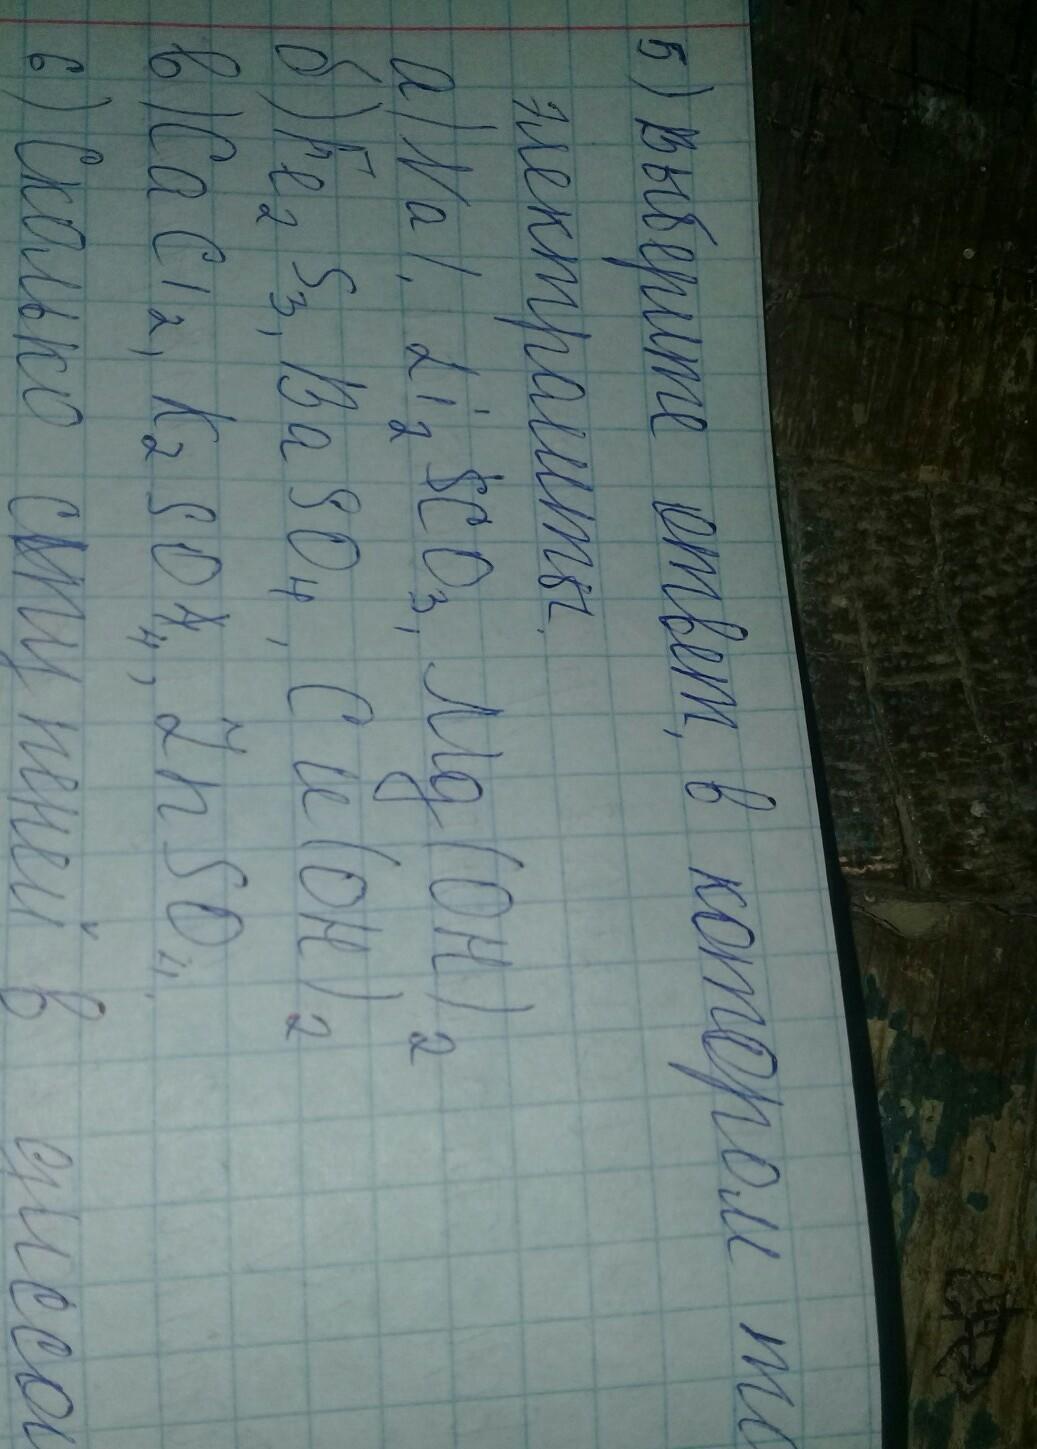 5) Выберите ответ, в котором то
электролиты.
а) NaI, Li₂CO₃, Mg(OH)₂
б) Fe₂S₃, BaSO₄, Cu(OH)₂
в) CaCl₂, K₂SO₄, ZnSO₄.
6) Сколько ступеней в диссо